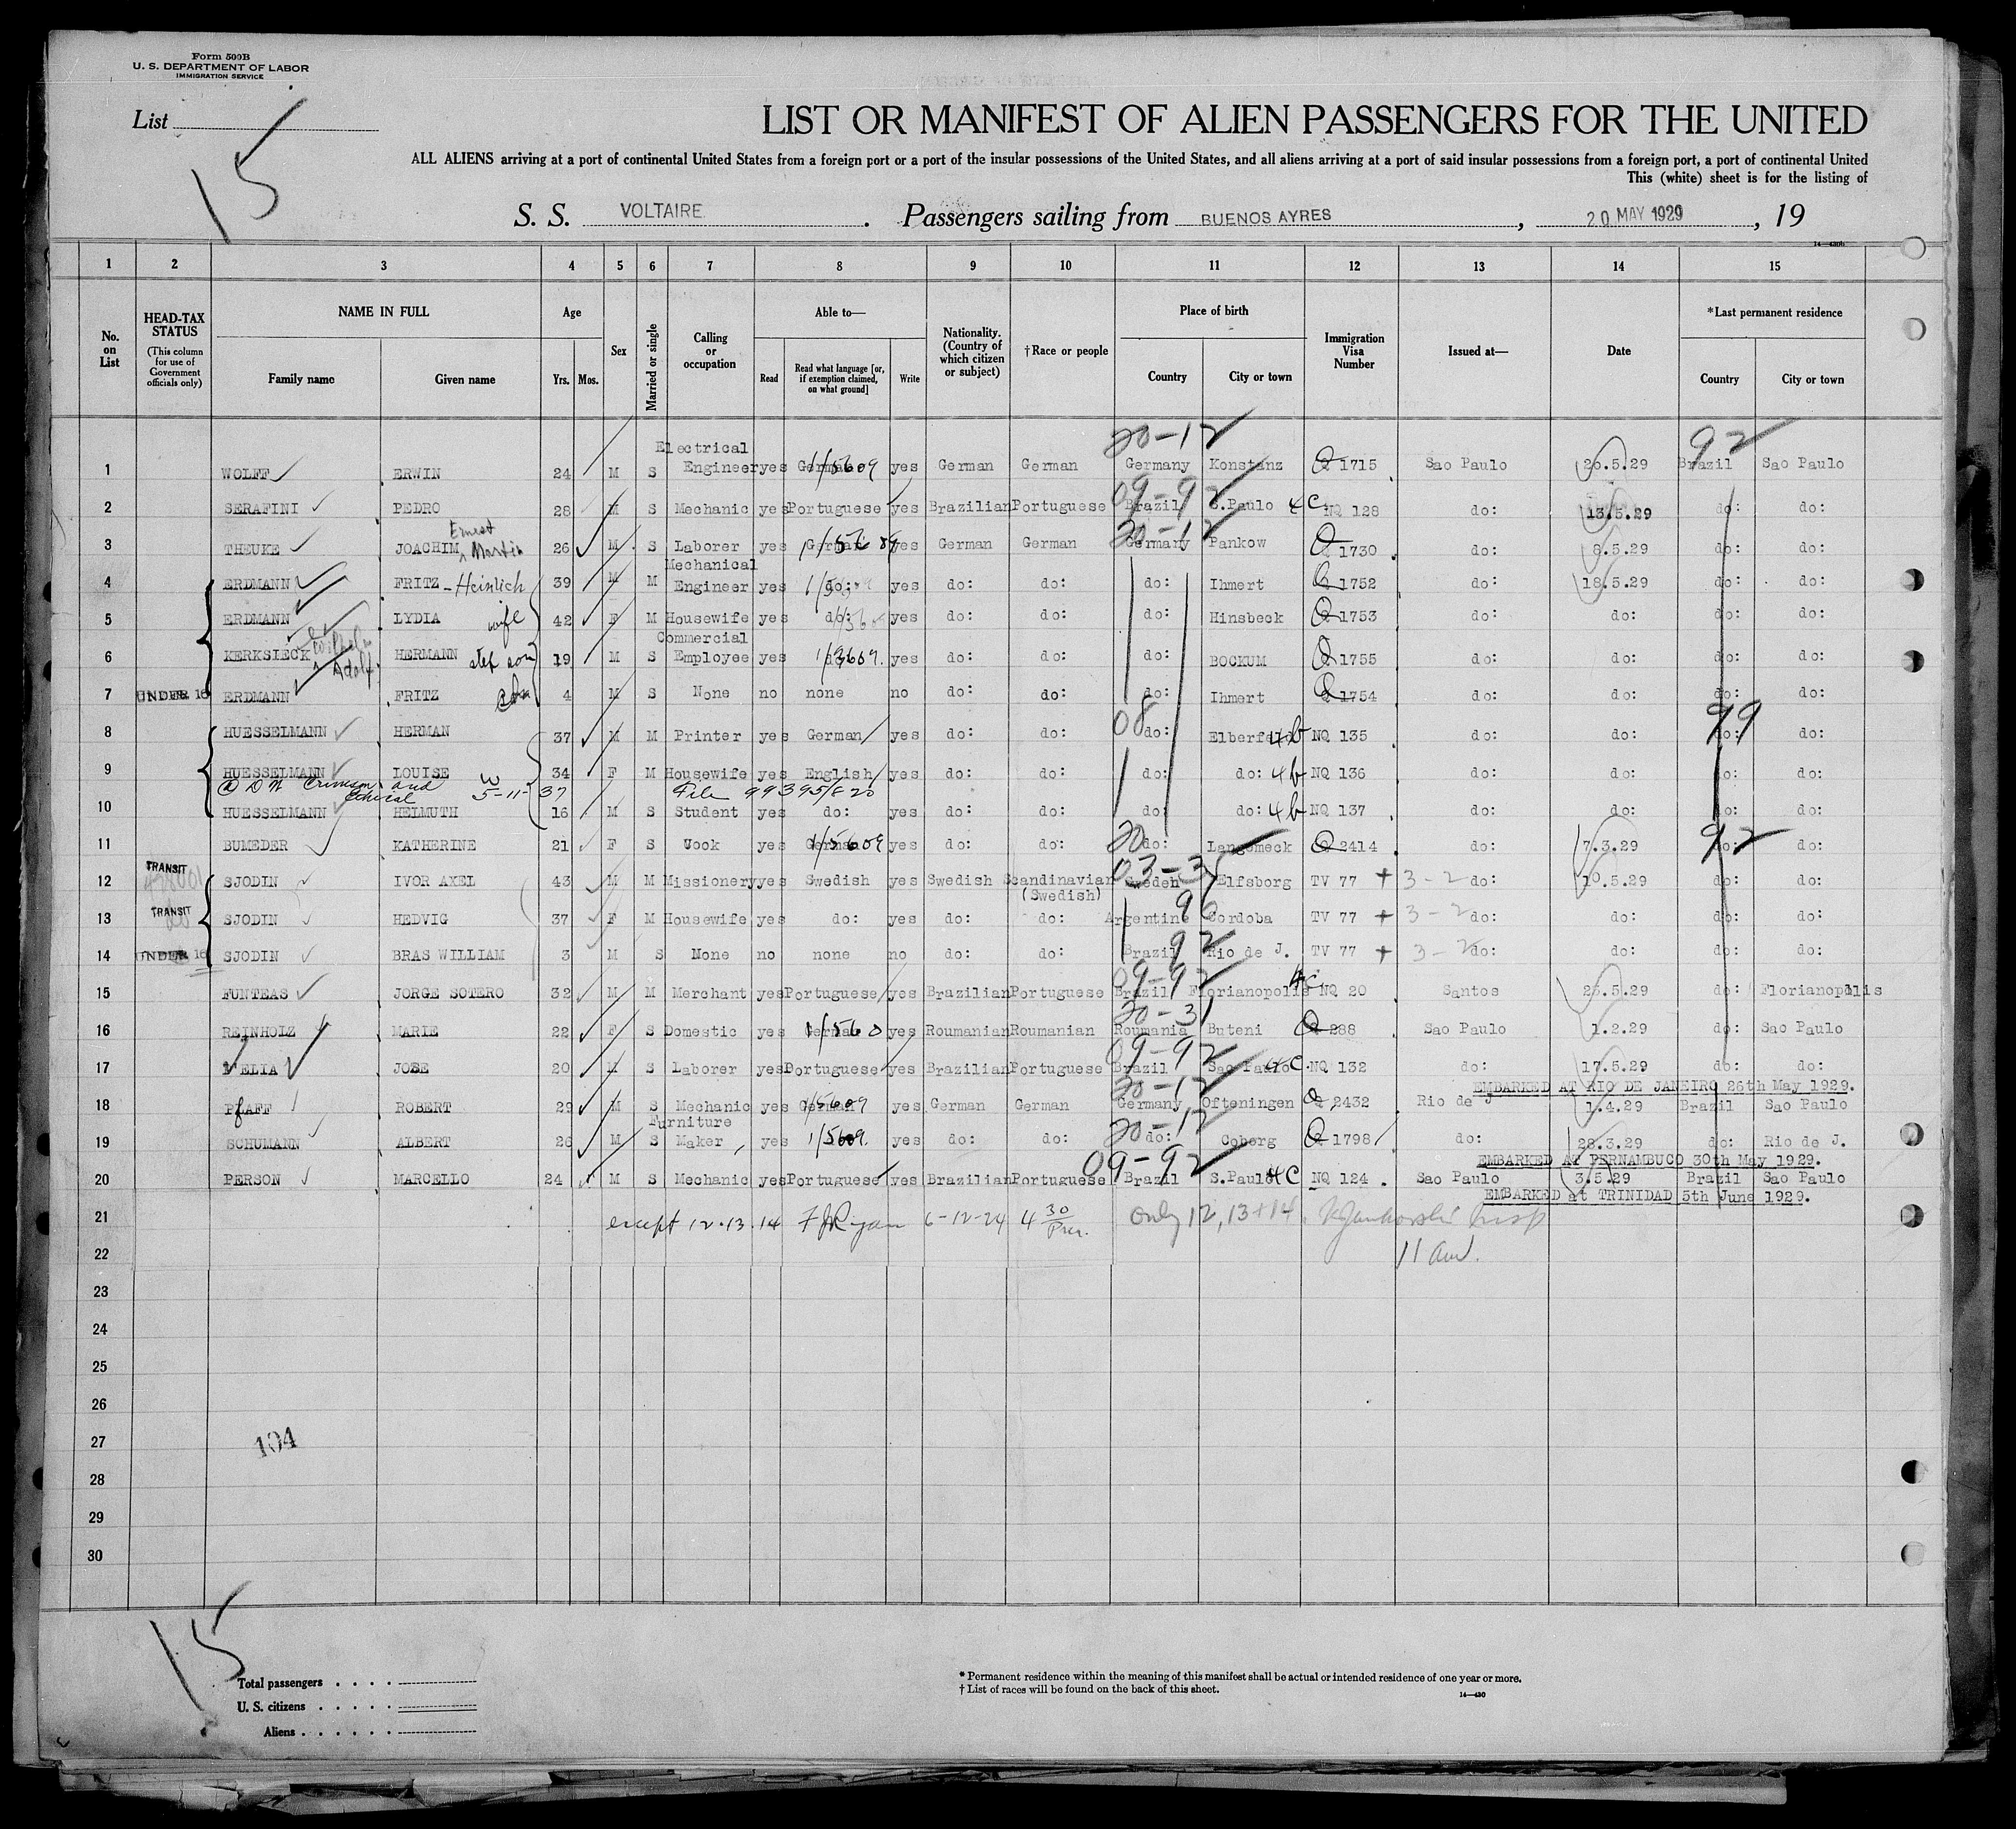 Form 500B
U. S. DEPARTMENT OF LABOR
IMMIGRATION SERVICE
List
15
LIST OR MANIFEST OF ALIEN PASSENGERS FOR THE UNITED
ALL ALIENS arriving at a port of continental United States from a foreign port or a port of the insular possessions of the United States, and all aliens arriving at a port of said insular possessions from a foreign port, a port of continental United
This (white) sheet is for the listing of
S. S. VOLTAIRE. Passengers sailing from BUENOS AYRES, 20 MAY 1929, 19
14—430b
1 2 3 4 5 6 7 8 9 10 11 12 13 14 15
No. on List
HEAD-TAX STATUS (This column for use of Government officials only)
NAME IN FULL Family name Given name
Age Yrs. Mos.
Sex
Married or single
Calling or occupation
Able to— Read Read what language [or, if exemption claimed, on what ground] Write
Nationality. (Country of which citizen or subject)
†Race or people
Place of birth Country City or town
Immigration Visa Number
Issued at—
Date
*Last permanent residence Country City or town
20-12 92
1 WOLFF ERWIN 24 M S Electrical Engineer yes German 1/5609 yes German German Germany Konstanz Q 1715 Sao Paulo 20.5.29 Brazil Sao Paulo
09-92
2 SERAFINI PEDRO 28 M S Mechanic yes Portuguese yes Brazilian Portuguese Brazil S.Paulo 4C NQ 128 do: 13.5.29 do: do:
20-12
3 THEUKE JOACHIM Ernest Martin 26 M S Laborer yes German yes German German Germany Pankow Q 1730 do: 8.5.29 do: do:
4 ERDMANN FRITZ-Heinlich 39 M M Mechanical Engineer yes do: yes do: do: do: Ihmert Q 1752 do: 18.5.29 do: do:
5 ERDMANN LYDIA wife 42 F M Housewife yes do: yes do: do: do: Hinsbeck Q 1753 do: do: do: do:
6 KERKSIECK Adolf HERMANN step son 19 M S Commercial Employee yes do: yes do: do: do: BOCKUM Q 1755 do: do: do: do:
7 UNDER 16 ERDMANN FRITZ son 4 M S None no none no do: do: do: Ihmert Q 1754 do: do: do: do:
08 99
8 HUESSELMANN HERMAN 37 M M Printer yes German yes do: do: do: Elberfeld 4b NQ 135 do: do: do: do:
9 HUESSELMANN LOUISE 34 F M Housewife yes English yes do: do: do: do: 4b NQ 136 do: do: do: do:
5-11-37 File 99395/820
10 HUESSELMANN HELMUTH 16 M S Student yes do: yes do: do: do: do: 4b NQ 137 do: do: do: do:
20 92
11 BUMEDER KATHERINE 21 F S Cook yes German 1/5609 yes do: do: do: Langomeck Q 2414 do: 7.3.29 do: do:
03-3
12 TRANSIT SJODIN IVOR AXEL 43 M M Missionery yes Swedish yes Swedish Scandinavian (Swedish) Sweden Elfsborg TV 77 + 3-2 do: 10.5.29 do: do:
13 TRANSIT SJODIN HEDVIG 37 F M Housewife yes do: yes do: do: Argentine Cordoba TV 77 + 3-2 do: do: do: do:
92
14 UNDER 16 SJODIN BRAS WILLIAM 3 M S None no none no do: do: Brazil Rio de J. TV 77 + 3-2 do: do: do: do:
09-92
15 FUNTEAS JORGE SOTERO 32 M M Merchant yes Portuguese yes Brazilian Portuguese Brazil Florianopolis 4C NQ 20 Santos 25.5.29 do: Florianopolis
20-31
16 REINHOLZ MARIE 22 F S Domestic yes German yes Roumanian Roumanian Roumania Buteni Q 288 Sao Paulo 1.2.29 do: Sao Paulo
09-92
17 ELIA JOSE 20 M S Laborer yes Portuguese yes Brazilian Portuguese Brazil Sao Paulo 4C NQ 132 do: 17.5.29 do: do:
20-12 EMBARKED AT RIO DE JANEIRO 26th May 1929.
18 PfAFF ROBERT 29 M S Mechanic yes German yes German German Germany Ofteningen Q 2432 Rio de J 1.4.29 Brazil Sao Paulo
20-12
19 SCHUMANN ALBERT 26 M S Furniture Maker yes 1/5609. yes do: do: do: Coberg Q 1798 do: 28.3.29 do: Rio de J.
09-92 EMBARKED AT PERNAMBUCO 30th May 1929.
20 PERSON MARCELLO 24 M S Mechanic yes Portuguese yes Brazilian Portuguese Brazil S.Paulo 4C NQ 124 Sao Paulo 3.5.29 Brazil Sao Paulo
EMBARKED at TRINIDAD 5th June 1929.
21 except 12.13.14 FJRyan 4 30 only 12, 13+14 Insp
22 11 am.
23
24
25
26
27
104
28
29
30
15
Total passengers
U. S. citizens
Aliens
* Permanent residence within the meaning of this manifest shall be actual or intended residence of one year or more.
† List of races will be found on the back of this sheet.
14—430